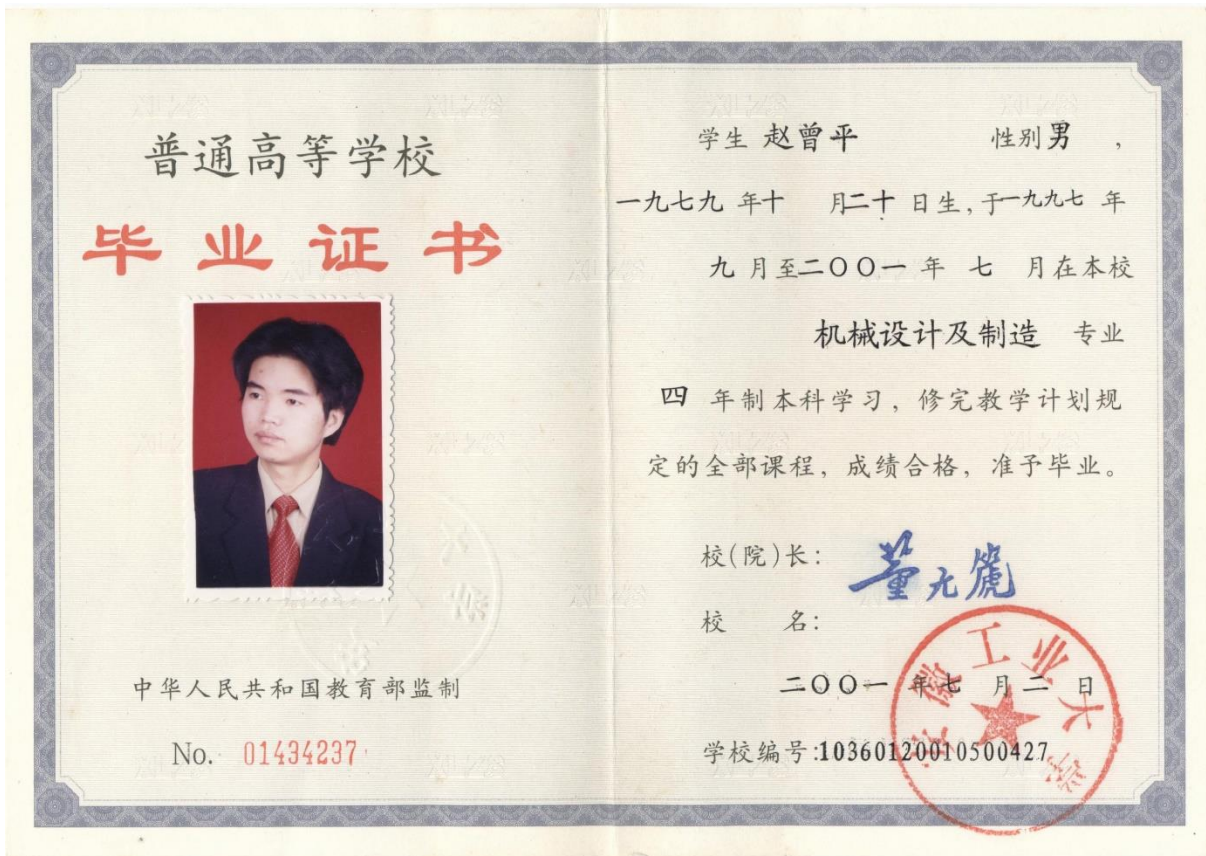 普通高等学校
毕业证书
中华人民共和国教育部监制
No. 01434237
学生 赵曾平 性别 男 ,
一九七九 年 十 月 二十 日生, 于 一九九七 年
九 月至 二〇〇一 年 七 月在本校
机械设计及制造 专业
四 年制本科学习, 修完教学计划规
定的全部课程, 成绩合格, 准予毕业。
校(院)长:
校 名:
安徽工业大学
二〇〇一 年 七 月 二 日
学校编号:10360120010500427